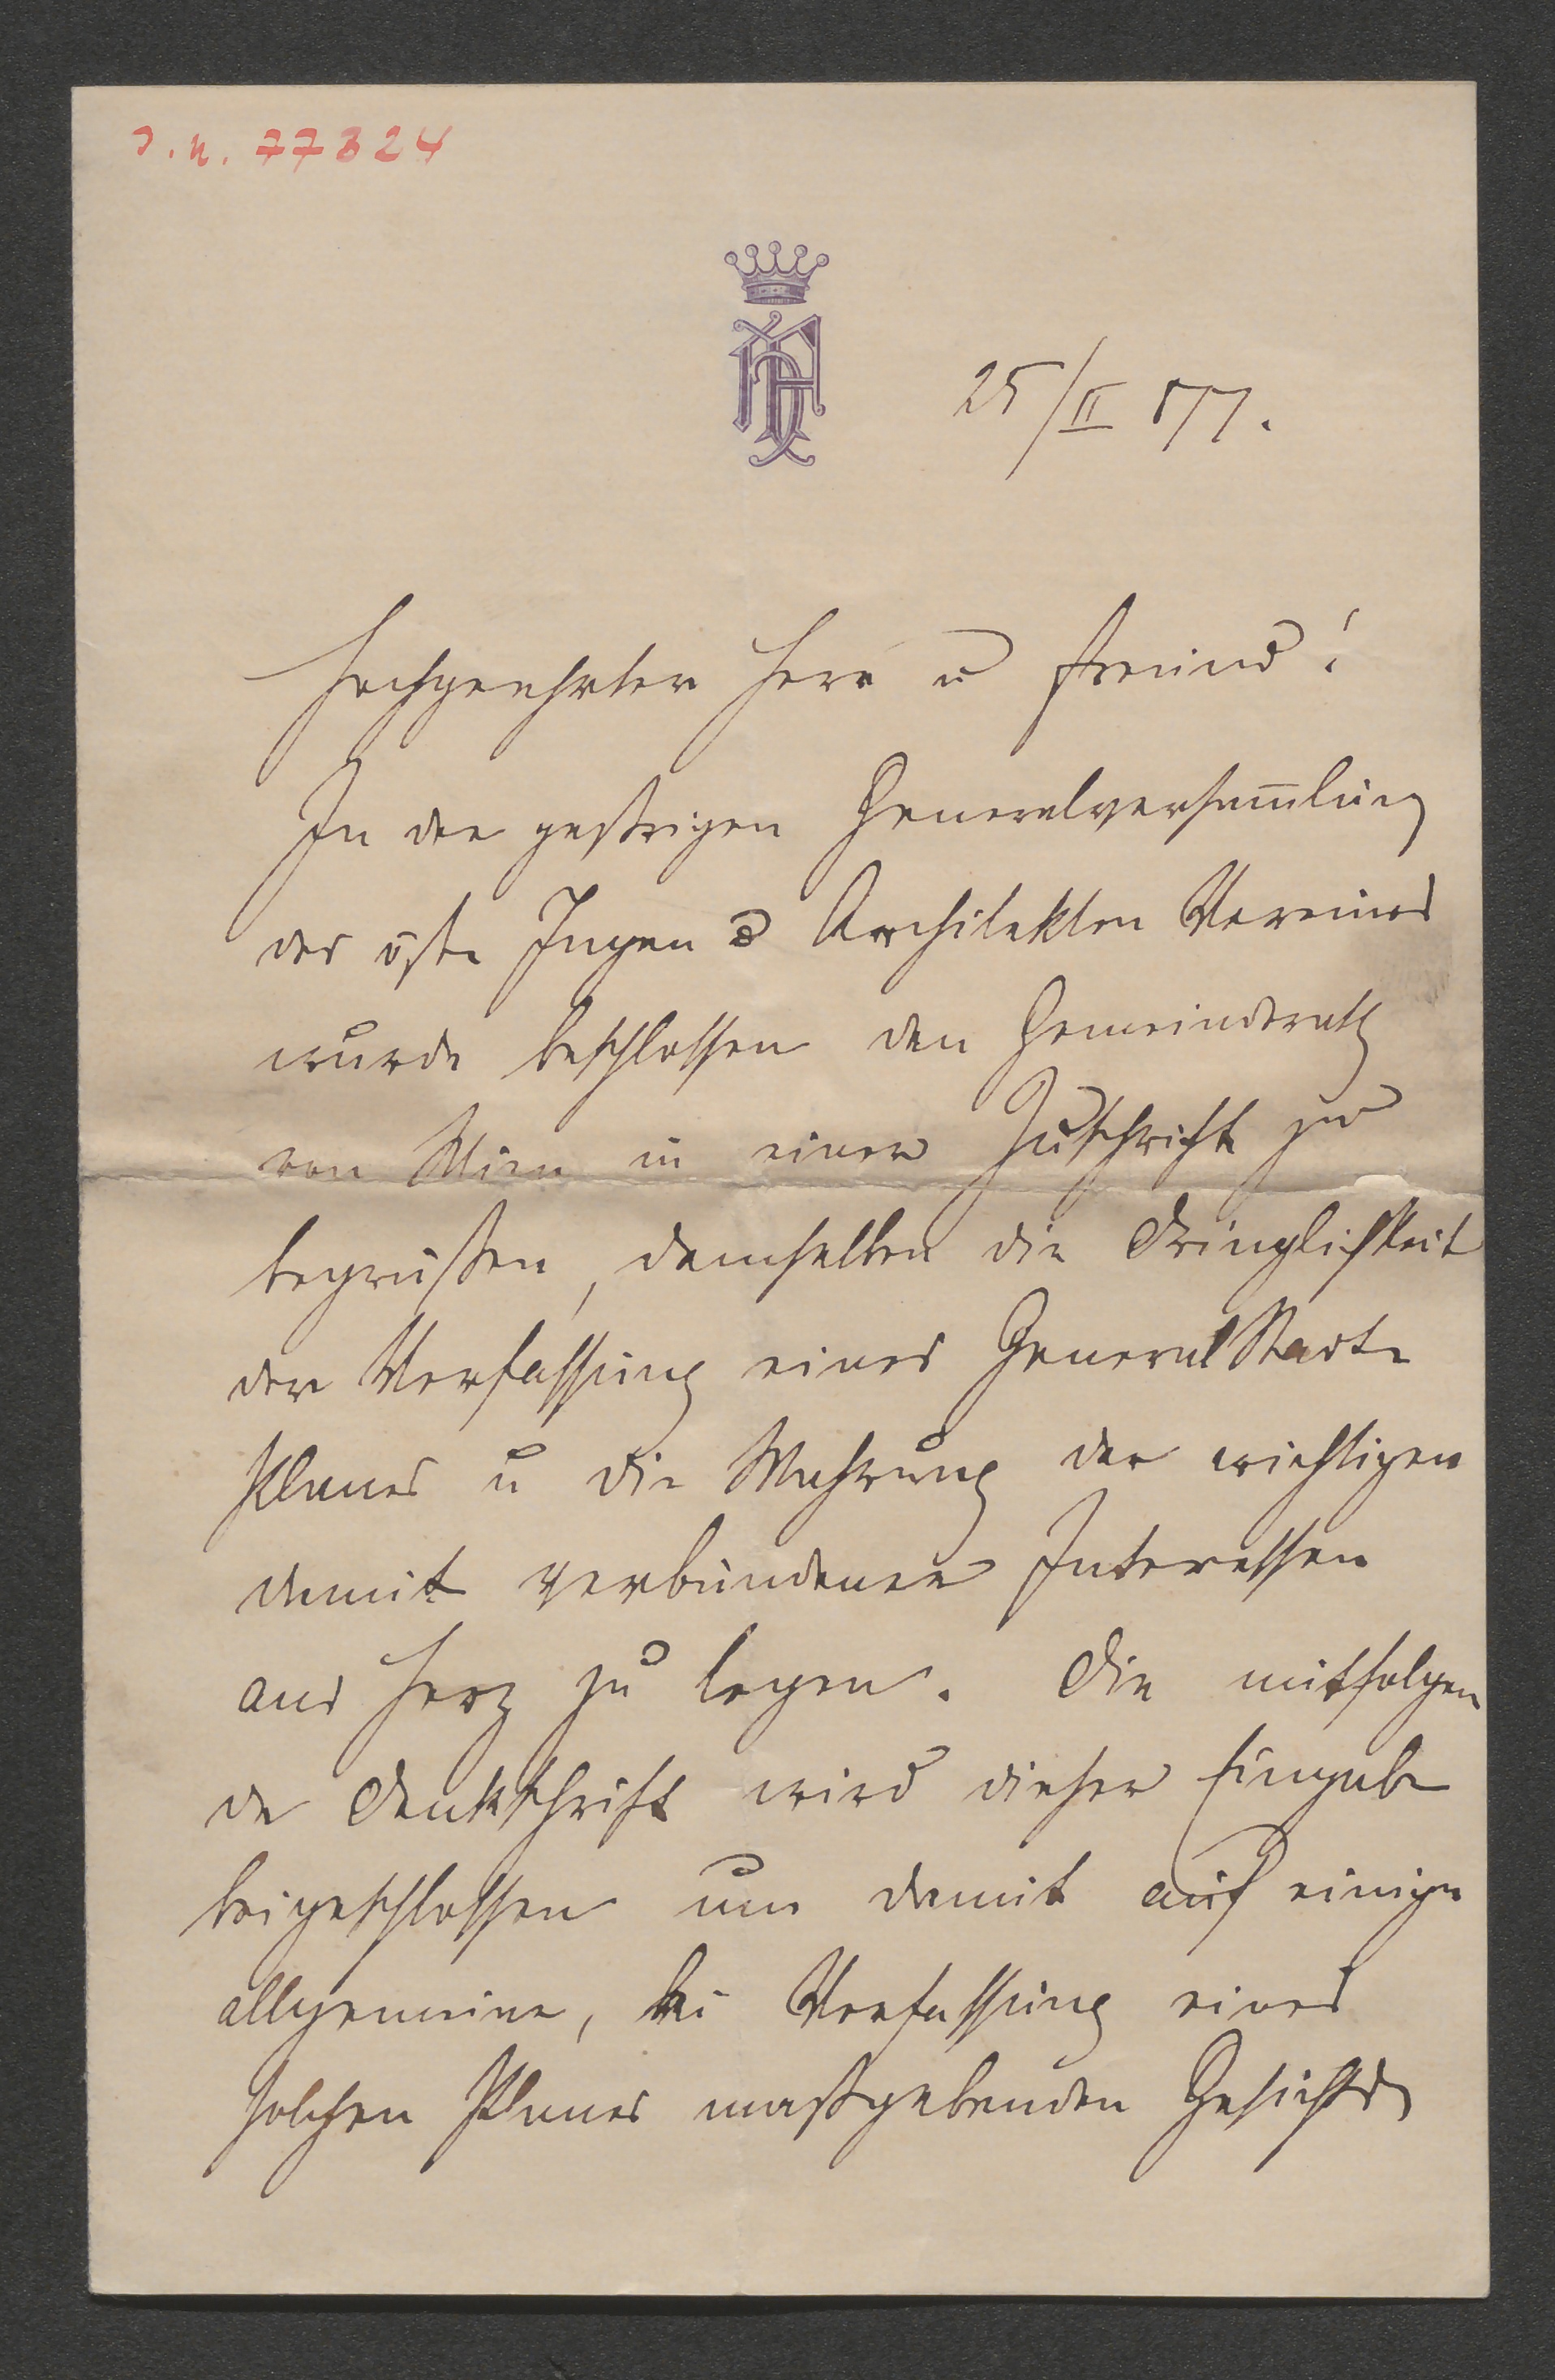 J.N. 77324
25/II 877.
Hochgeehrter Herr u Freund!
In der gestrigen Generalversam̅lung
des öste Ingen & Architekten Vereines
wurde beschlossen den Gemeinderath
von Wien in einer Zuschrift zu
begrüßen, demselben die Dringlichkeit
der Verfassung eines General Stadt
Planes u die Wahrung der wichtigen
damit verbundenen Interessen
ans Herz zu legen. Die mitfolgen
de Denkschrift wird dieser Eingabe
beigeschlossen um damit auf einige
allgemeine, bei Verfassung eines
solchen Planes maßgebenden Gesichts